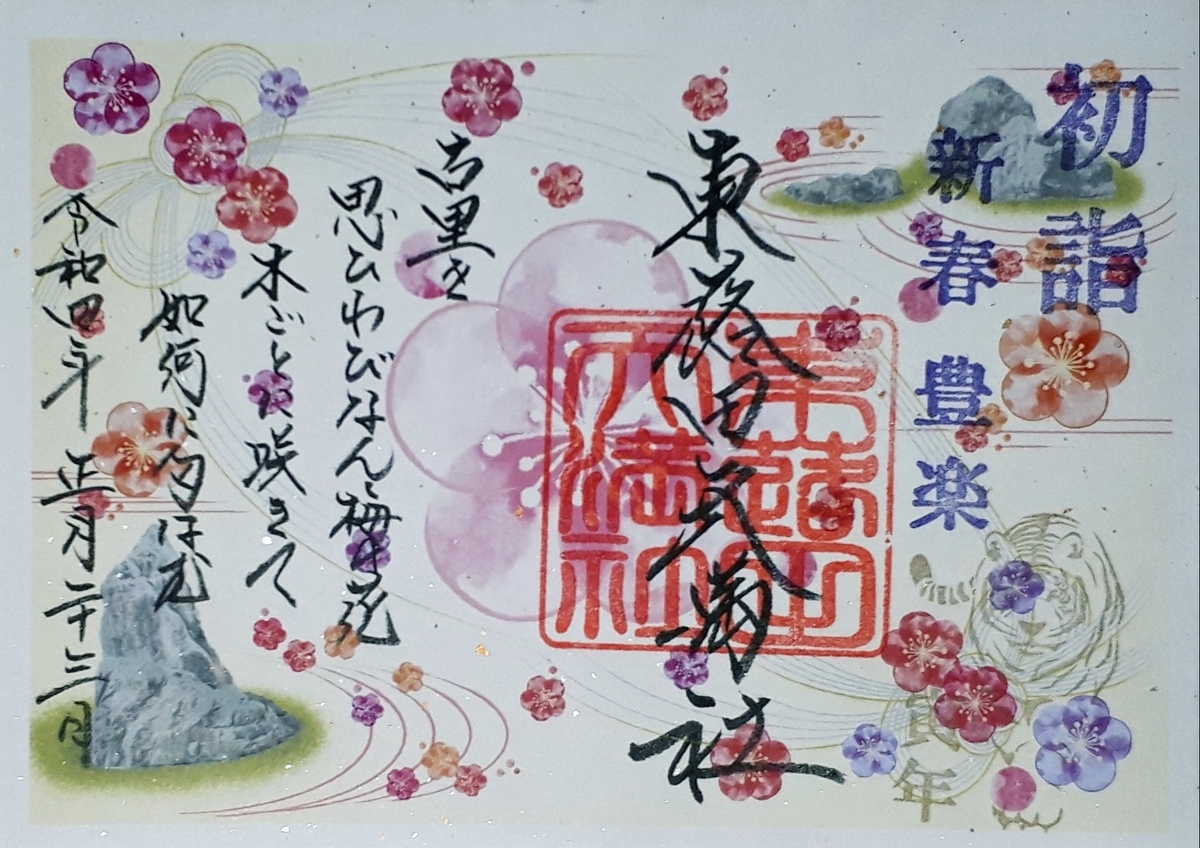 初詣
新春豊楽
寅年
東蕗田天満社
東蕗田
天満社
古里を
思ひわびなん梅の花
木ごとに咲きて
如何に匂ほ
令和四年 正月二十三日